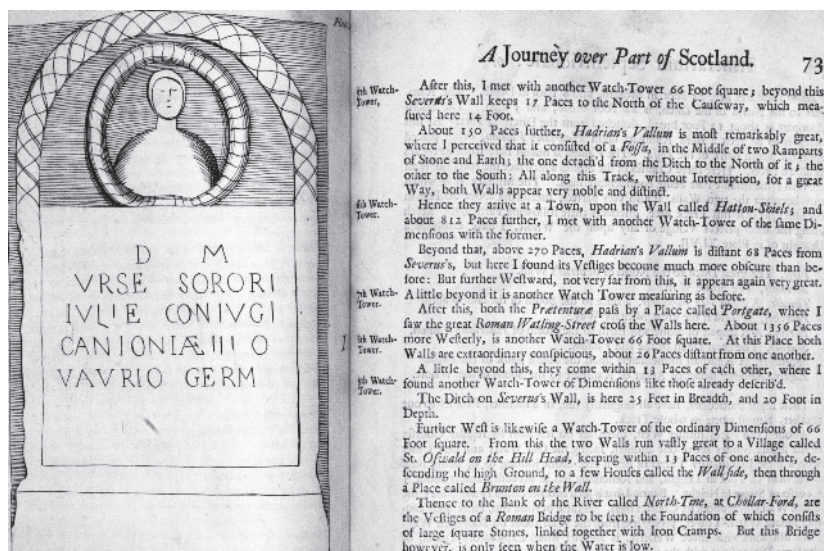 D M
VRSE SORORI
IVLIE CONIVGI
CANIONIÆ IIII O
VAVRIO GERM
A Journey over Part of Scotland. 73
After this, I met with another Watch-Tower 66 Foot square; beyond this
Watch-Tower,
Severus's Wall keeps 17 Paces to the North of the Causeway, which mea-
sured here 14 Foot.
About 150 Paces further, Hadrian's Vallum is most remarkably great,
where I perceived that it consisted of a Fossa, in the Middle of two Ramparts
of Stone and Earth; the one detach'd from the Ditch to the North of it; the
other to the South: All along this Track, without Interruption, for a great
Way, both Walls appear very noble and distinct.
6th Watch-Tower.
Hence they arrive at a Town, upon the Wall called Hatton-Shiels; and
about 812 Paces further, I met with another Watch-Tower of the same Di-
mensions with the former.
Beyond that, above 270 Paces, Hadrian's Vallum is distant 68 Paces from
Severus's, but here I found its Vestiges become much more obscure than be-
fore: But further Westward, not very far from this, it appears again very great.
7th Watch-Tower.
A little beyond it is another Watch Tower measuring as before.
After this, both the Prætenturæ pass by a Place called Portgate, where I
saw the great Roman Watling-Street cross the Walls here. About 1356 Paces
8th Watch-Tower.
more Westerly, is another Watch-Tower 66 Foot square. At this Place both
Walls are extraordinary conspicuous, about 26 Paces distant from one another.
A little beyond this, they come within 13 Paces of each other, where I
9th Watch-Tower.
found another Watch-Tower of Dimensions like those already describ'd.
The Ditch on Severus's Wall, is here 25 Feet in Breadth, and 20 Foot in
Depth.
Further West is likewise a Watch-Tower of the ordinary Dimensions of 66
Foot square. From this the two Walls run vastly great to a Village called
St. Oswald on the Hill Head, keeping within 13 Paces of one another, de-
scending the high Ground, to a few Houses called the Wall side, then through
a Place called Brunton on the Wall.
Thence to the Bank of the River called North-Tine, at Chollar-Ford, are
the Vestiges of a Roman Bridge to be seen; the Foundation of which consists
of large square Stones, linked together with Iron Cramps. But this Bridge
however, is only seen when the Water is low.